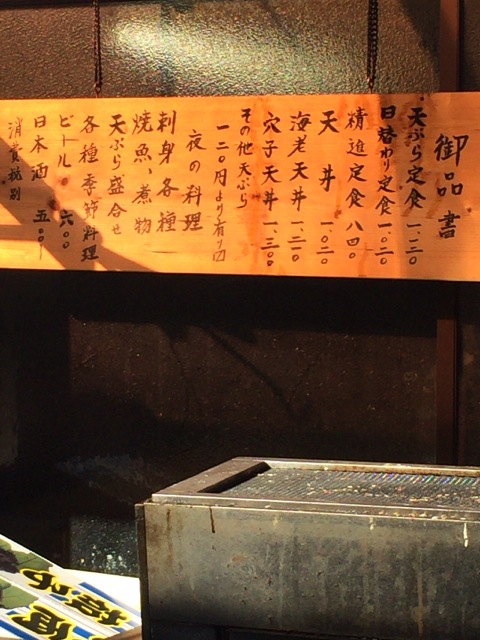 御品書
天ぷら定食 一、一二〇
日替わり定食 一、〇二〇
精進定食 八四〇
天丼 一、〇二〇
海老天丼 一、二二〇
穴子天丼 一、三二〇
その他天ぷら
一二〇円より有り〼
夜の料理
刺身各種
焼魚、煮物
天ぷら盛合せ
各種季節料理
ビール 六〇〇
日本酒 五〇〇
消費税別